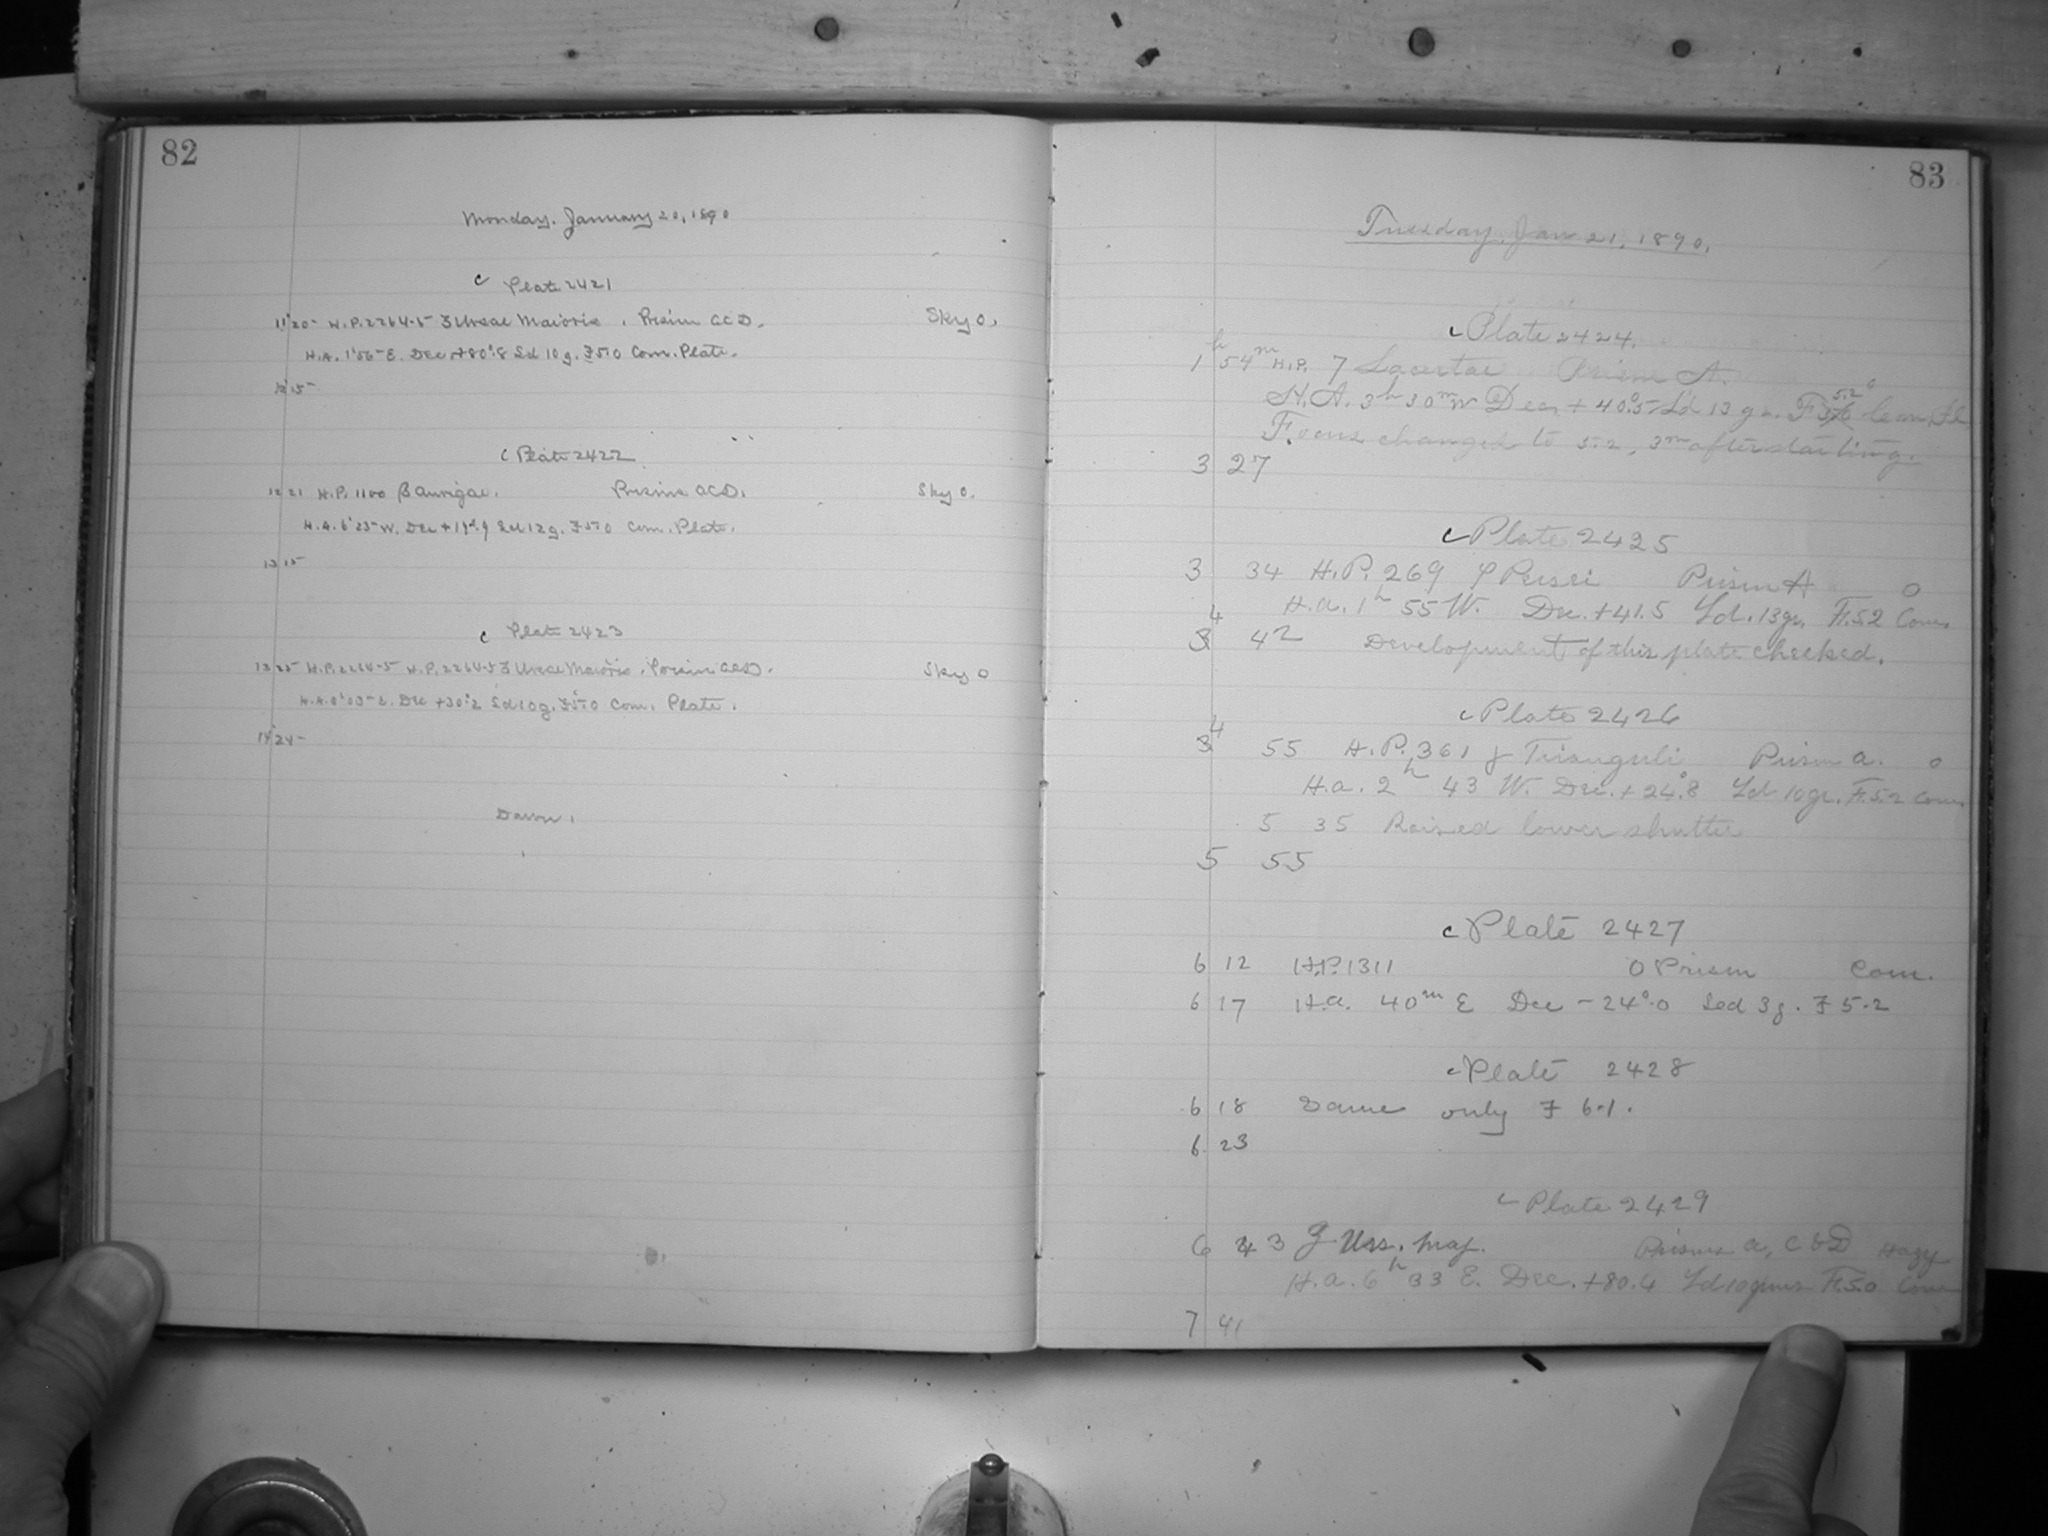 82
Monday. January 20, 1890
c Plate 2421
11 20 H.P. 2264-5 ζ Ursae Maioris. Prism A C D. Sky 0.
H.A. 1 56 E. Dec +80°.8 Ld 10 g. F 5.0 Com. Plate.
12 15
c Plate 2422
12 21 H.P. 1100 β Aurigae. Prisms A C D. Sky 0.
H.A. 6 25 W. Dec + Ld 12 g. F 5.0 Com. Plate.
13 15
c Plate 2423
13 25 H.P. 2264-5 H.P. 2264-5 ζ Ursae Maioris. Prism A C D. Sky 0
H.A. 0 03 E. Dec +30°.2 Ld 10 g. F 5.0 Com. Plate.
14 24
Dawn.
83
Tuesday. Jan 21, 1890.
c Plate 2424.
1h 54m H.P. 7 Lacertae Prism A.
H.A. 3h 30m W Dec. + 40°.5 Ld 13 gr. F 5.2 Com
Focus changed to 5.2, 3m after starting.
3 27
c Plate 2425
3 34 H.P. 269 φ Persei Prism A 0
H.a. 1h 55 W. Dec. +41.5 Ld. 13gr. F. 5.2 Com
4 42 Development of this plate checked.
c Plate 2426
4 55 H.P. 361 γ Trianguli Prism a. 0
H.a. 2h 43 W. Dec. +24°.8 Ld 10gr. F. 5.2 Com
5 35 Raised lower shutter
5 55
c Plate 2427
6 12 H.P. 1311 0 Prism Com.
6 17 H.a. 40m E Dec -24°.0 Led 3g. F 5.2
c Plate 2428
6 18 Same only F 6.1.
6 23
c Plate 2429
6 43 ζ Urs. Maj. Prisms a, c & D Hazy
H.a. 6h 33 E. Dec. +80.4 Ld 10 gms F. 5.0 Com
7 41